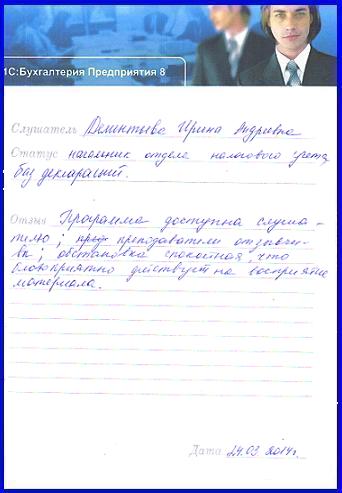 1С:Бухгалтерия Предприятия 8
Слушатель Дементьева Ирина Андревна
Статус начальник отдела налогового учета
баз деклараций.
Отзыв Программа доступна слуша-
телю; преподаватели отзывчи-
вы; обстановка спокойная, что
благоприятно действует на восприятие
материала.
Дата 24.03.2014г.